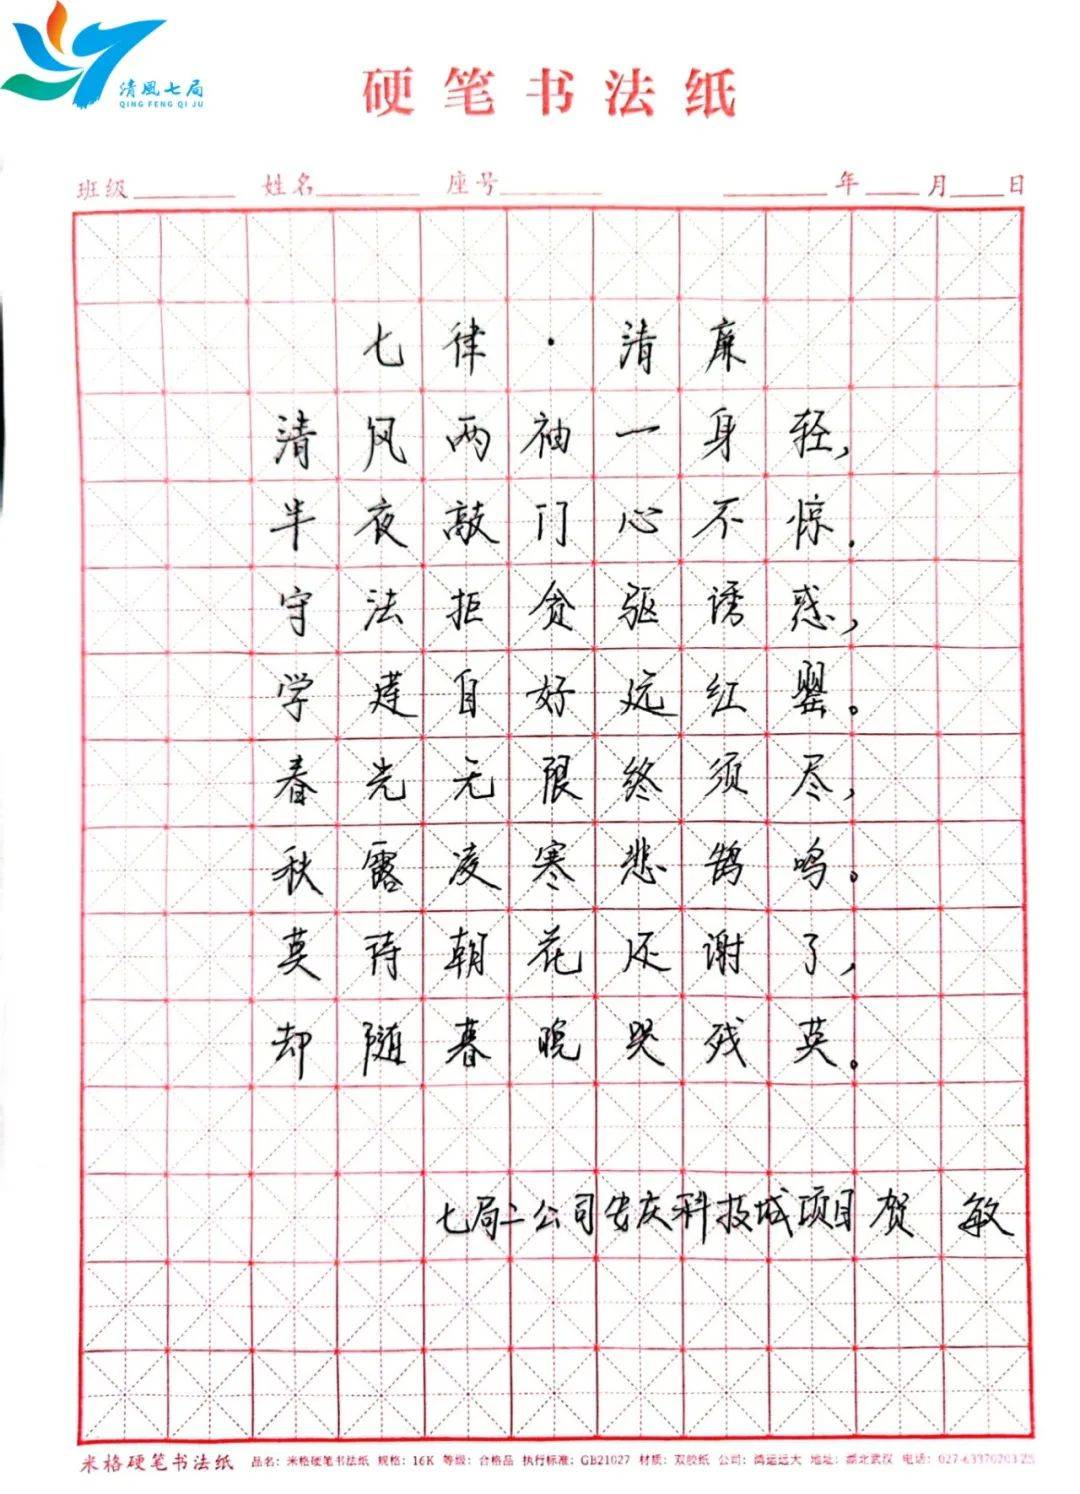 清風七局
QING FENG QI JU
硬笔书法纸
班级 姓名 座号 年 月 日
七律·清廉
清风两袖一身轻,
半夜敲门心不惊.
守法拒贪驱诱惑,
学莲自好远红罂。
春光无限终须尽,
秋露凌寒悲鹤鸣。
莫待朝花还谢了,
却随暮晚哭残英。
七局二公司安庆科技城项目贺敏
米格硬笔书法纸 品名:米格硬笔书法纸 规格:16K 等级:合格品 执行标准:GB21027 材质:双胶纸 公司:鸿运远大 地址:湖北武汉 电话: